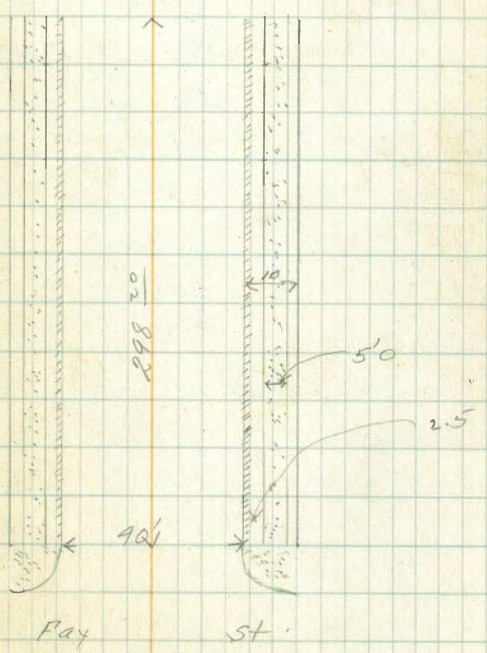 298 20
10
5'0
2.5
40'
Fay St.